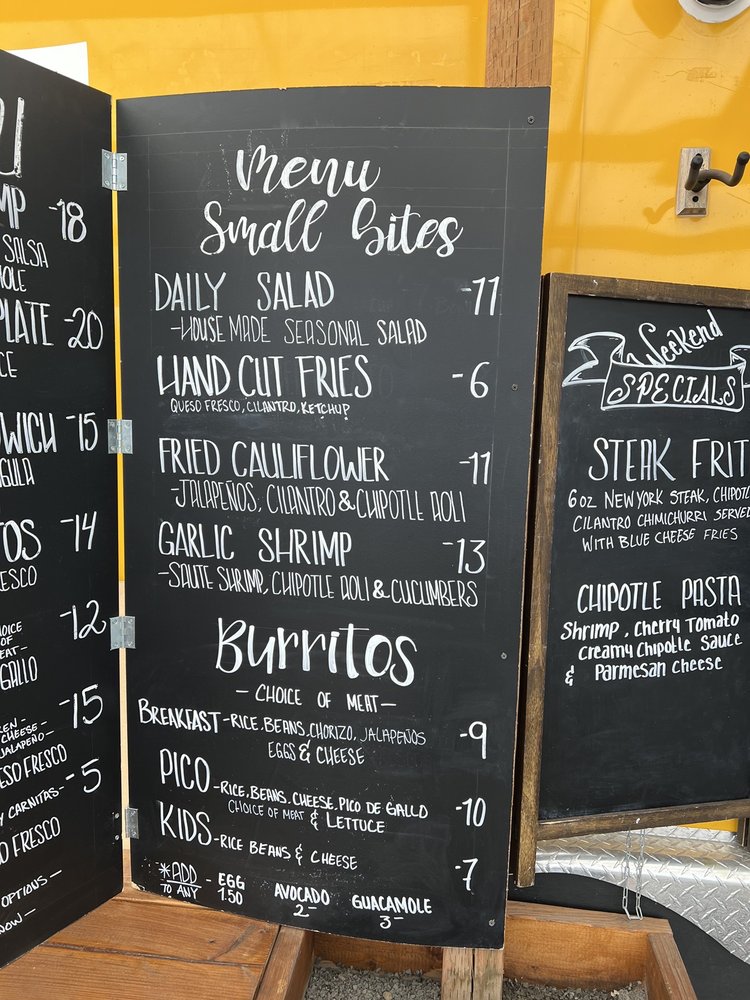 U
MP -18
SALSA
OLE
PLATE -20
CE
WICH -15
GULA
TOS -14
ESCO
-12
OICE
OF
EAT-
GALLO
-15
EN-
CHEESE-
JALAPEÑO-
ESO FRESCO
-5
Y CARNITAS-
O FRESCO
OPTIONS-
NOW-
Menu
Small Bites
DAILY SALAD -11
-HOUSE MADE SEASONAL SALAD
HAND CUT FRIES -6
QUESO FRESCO, CILANTRO, KETCHUP
FRIED CAULIFLOWER -11
-JALAPEÑOS, CILANTRO & CHIPOTLE AOLI
GARLIC SHRIMP -13
-SAUTE SHRIMP, CHIPOTLE AOLI & CUCUMBERS
Burritos
- CHOICE OF MEAT -
BREAKFAST - RICE, BEANS, CHORIZO, JALAPEÑOS -9
EGGS & CHEESE
PICO - RICE, BEANS, CHEESE, PICO DE GALLO -10
CHOICE OF MEAT & LETTUCE
KIDS - RICE BEANS & CHEESE -7
*ADD TO ANY - EGG 1.50 AVOCADO 2- GUACAMOLE 3-
Weekend
SPECIALS
STEAK FRIT
6 OZ NEW YORK STEAK, CHIPOTL
CILANTRO CHIMICHURRI SERVED
WITH BLUE CHEESE FRIES
CHIPOTLE PASTA
Shrimp, Cherry Tomato
Creamy Chipotle Sauce
& Parmesan Cheese